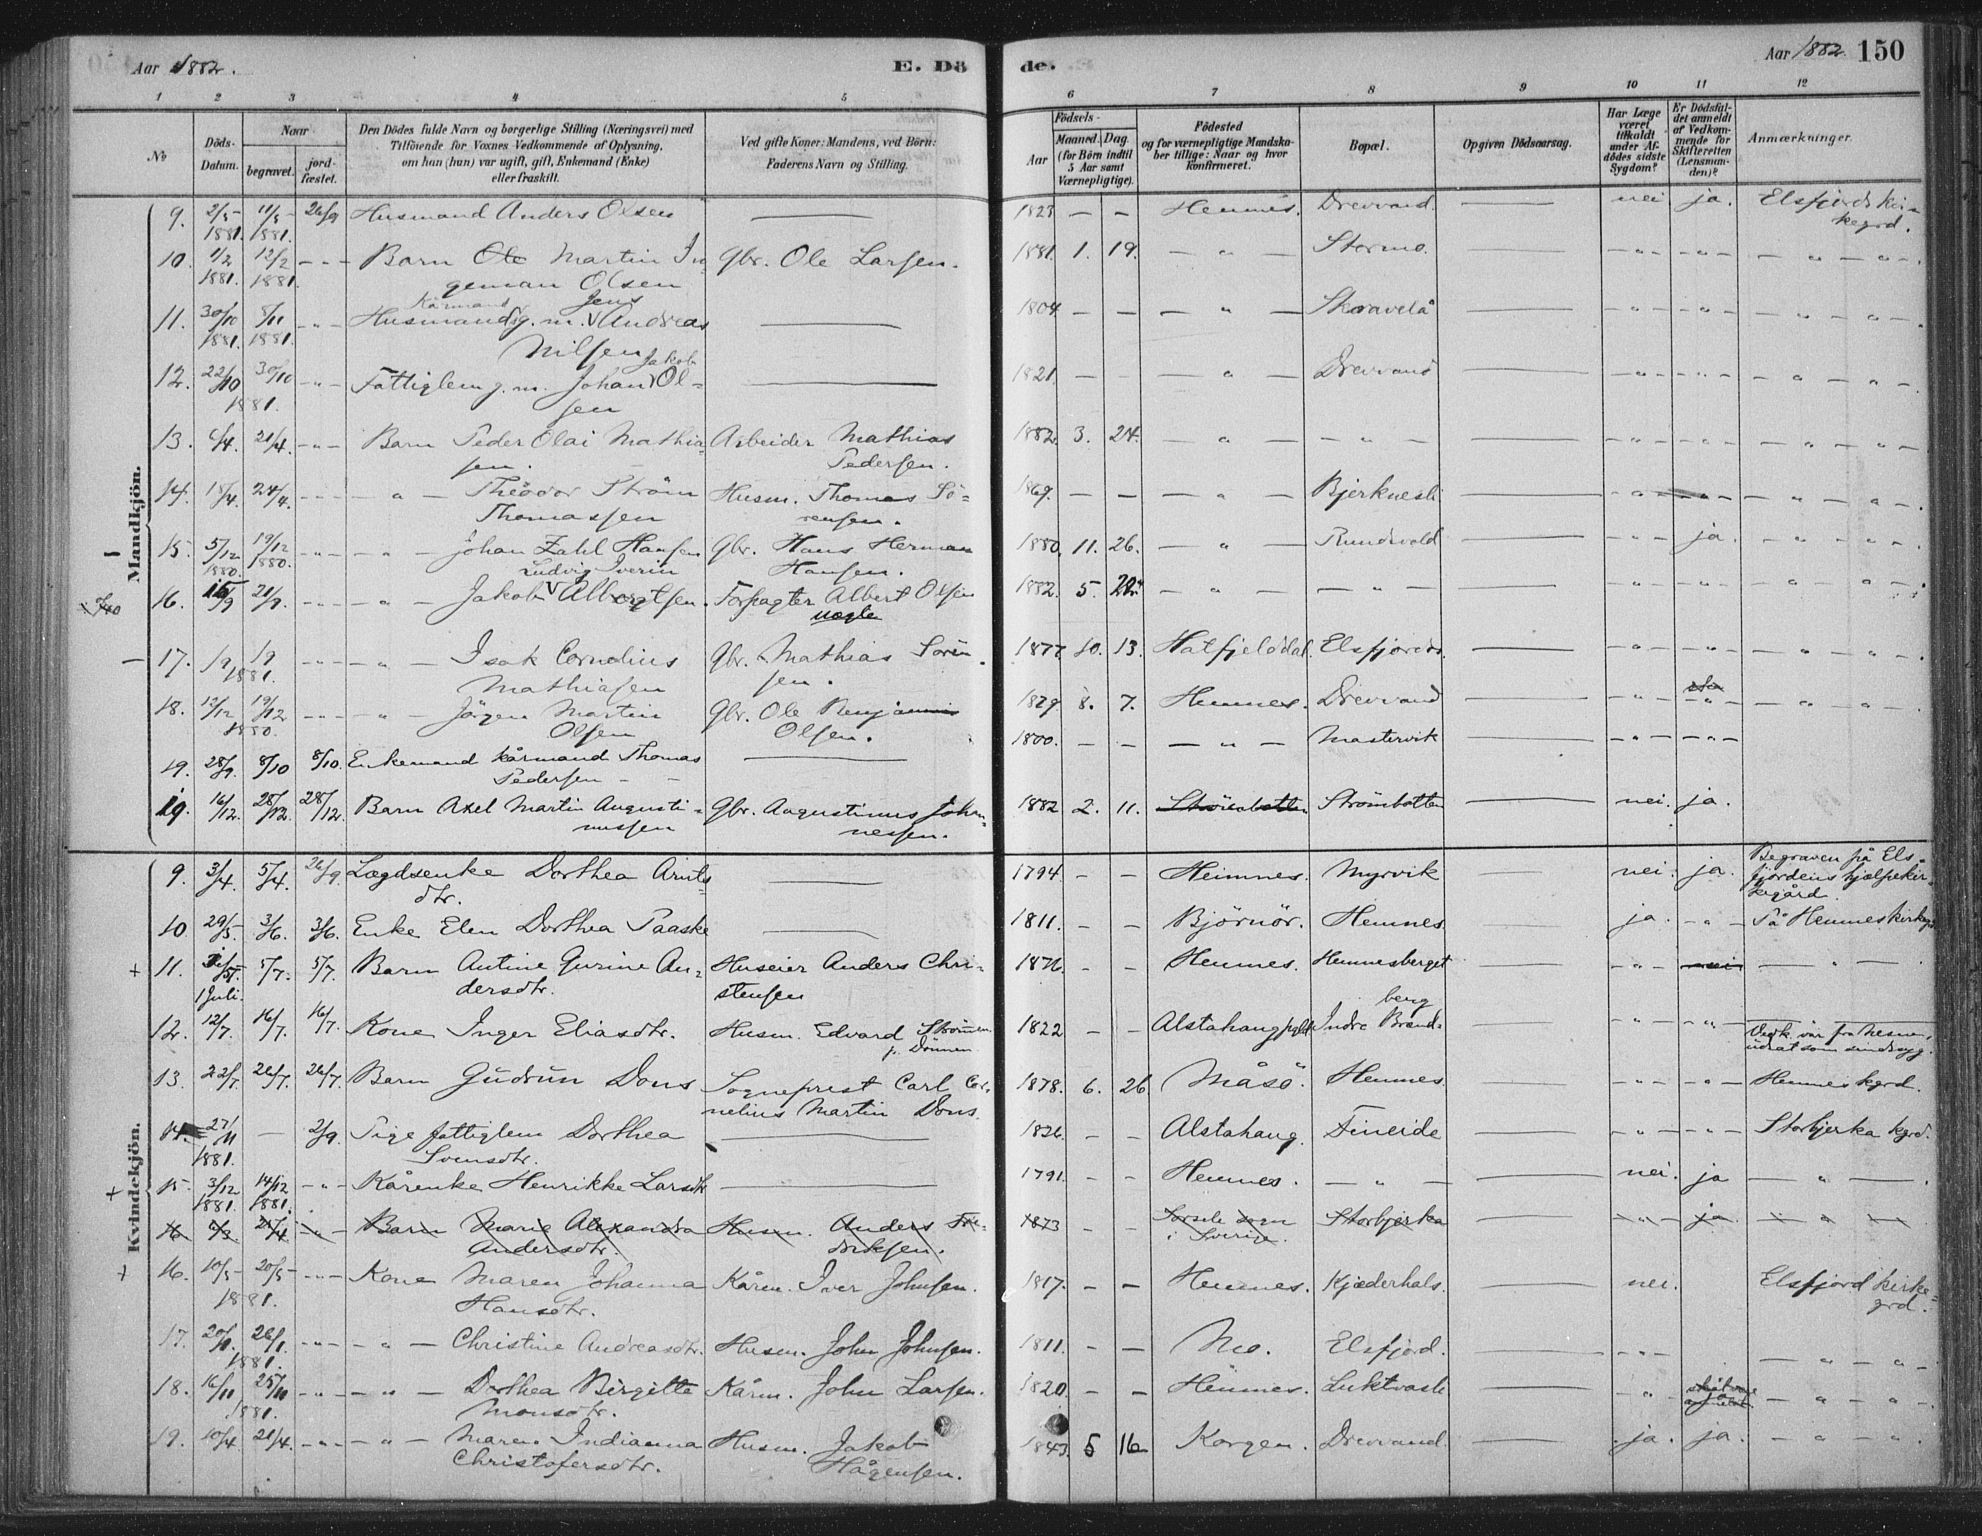 Aar 1882.
E. Dö
de.
Aar 1882.
150
1 2 3 4 5 6 7 8 9 10 11 12
No
Döds-Datum.
Naar
begravet.
jord-fæstet.
Den Dödes fulde Navn og borgerlige Stilling (Næringsvei) med
Tilföiende for Voxnes Vedkommende af Oplysning,
om han (hun) var ugift, gift, Enkemand (Enke)
eller fraskilt.
Ved gifte Koner: Mandens, ved Börn:
Faderens Navn og Stilling.
Födsels-
Aar
Maaned. Dag.
(for Börn indtil
5 Aar samt
Værnepligtige).
Födested
og for værnepligtige Mandska-
ber tillige: Naar og hvor
konfirmeret.
Bopæl.
Opgiven Dödsaarsag.
Har Læge
været
tilkaldt
under Af-
dödes sidste
Sygdom?
Er Dödsfal-
det anmeldt
af Vedkom-
mende for
Skifteretten
(Lensman-
den)?
Anmærkninger.
Mandkjön.
9. 2/5 1881. 11/5 1881. 26/9 Husmand Anders Olsen — 1823 - - Hemnes. Drevvand. nei. ja. Elsfjords kir-
kegrd.
10. 1/2 1881. 12/2 1881. - " - Barn Ole Martin In- Gbr. Ole Larsen. 1881. 1. 19. - " - Stormo.
geman Olsen
11. 30/10 1881. 8/11 1881. - " - Kårmand Jens
Husmand g. m. V Andreas — 1804 - - - " - Skravelå
Nilsen
12. 22/10 30/10 1881. - " - Fattiglem g. m. Johan V Jakob Ol- — 1821. - - - " - Drevvand
sen
13. 6/4. 21/4. - " - Barn Peder Olai Mathia- Arbeider Mathias 1882. 3. 24. - " - - " -
sen. Pedersen.
14. 18/4. 24/4. - " - - " - Theodor Ström Husm. Thomas Sö- 1869. - - - " - Bjerknesli
Thomassen rensen.
15. 5/12 1880. 19/12 1880. - " - - " - Johan Zahl Hansen Gbr. Hans Herman 1880. 11. 26. - " - Rundvold ja.
Ludvig Iverin Hansen.
16. 15/9 21/9. - " - - " - Jakob V Albertsen. Forpagter Albert Olsen 1882. 5. - " - - " -
17. 1/9 1/9 1881. - " - - " - Isak Cornelius Gbr. Mathias Sören- 1877. 10. 13. Hatfjelddal. Elsfjord.
Mathiasen sen.
18. 12/12 19/12 1880. - " - - " - Jörgen Martin Gbr. Ole Benjamin 1879 8. 7. Hemnes. Drevvand
Olsen Olsen.
19. 28/9. 8/10 8/10. Enkemand kårmand Thomas — 1800. - - - " - Mastervik
Pedersen - -
19. 16/12. 28/12. 28/12. Barn Axel Martin Augusti- Gbr. Augustinus Johan- 1882 2. 11. Strömbotten Strömbotten nei. ja.
nussen nessen.
Kvindekjön.
9. 3/4. 5/4. 26/9. Lægdsenke Dorthea Arnts- — 1794 - - Hemnes. Myrvik nei. ja. Begraven på Els-
dtr. fjordens hjælpekir-
kegård.
10 29/5. 3/6. 3/6. Enke Elen Dorthea Paaske — 1811. - - Björnör. Hemnes. ja. - " - På Hemnes kirkegr.
11. 1 Juli. 5/7. 5/7. Barn Antine Gurine An- Huseier Anders Chri- 1876 - - Hemnes. Hemnesberget - " - nei - " -
dersdtr. stensen
12. 12/7. 16/7. 16/7. Kone Inger Eliasdtr. Husm. Edvard Strömmen 1822 - - Alstahaug pgld. Indre Brand- berg - " - - " - Vedk. var fra Nesne,
p. Dönnen udsat som sindssyg.
13. 22/7. 26/7. 26/7. Barn Gudrun Dons Sogneprest Carl Cor- 1878. 6. 26 Måsö. Hemnes. - " - - " - Hemnes kgrd.
nelius Martin Dons.
14. 27/11 1881. — 2/9. Pige fattiglem Dorthea — 1826. - - Alstahaug. Fineide - " - - " - Storbjerka kgrd.
Svensdtr.
15. 3/12 1881. 14/12 1881. - " - Kårenke Henrikke Larsdtr — 1791. - - Hemnes. - " - nei. ja - " -
16 6/3. 21/4 - " - Barn Marie Alexandra Husm. Anders Fre- 1873 - - Sorsele sogn Storbjerka - " - ja. - " -
Andersdtr. driksen. i Sverige.
16. 10/5 1881. 20/5 - " - Kone Maren Johanna Kårm. Iver Johnsen. 1817. - - Hemnes. Kjæderhals. nei. Elsfjord kirke-
Hansdtr. grd.
17. 20/1. 26/1. 1881. - " - - " - Christine Andreasdtr. Husm. John Johnsen. 1811. - - Mo. Elsfjord. - " -
18. 16/10 25/10 1881. - " - - " - Dorthea Birgitte Kårm. John Larsen. 1820. - - Hemnes. Luktvasli - " -
Monsdtr.
19. 10/4. 21/4. - " - - " - Maren Indianna Husm. Jakob 1843. 5 16 Korgen. Drevvand. ja. ja. - " -
Christofersdtr. Hågensen.